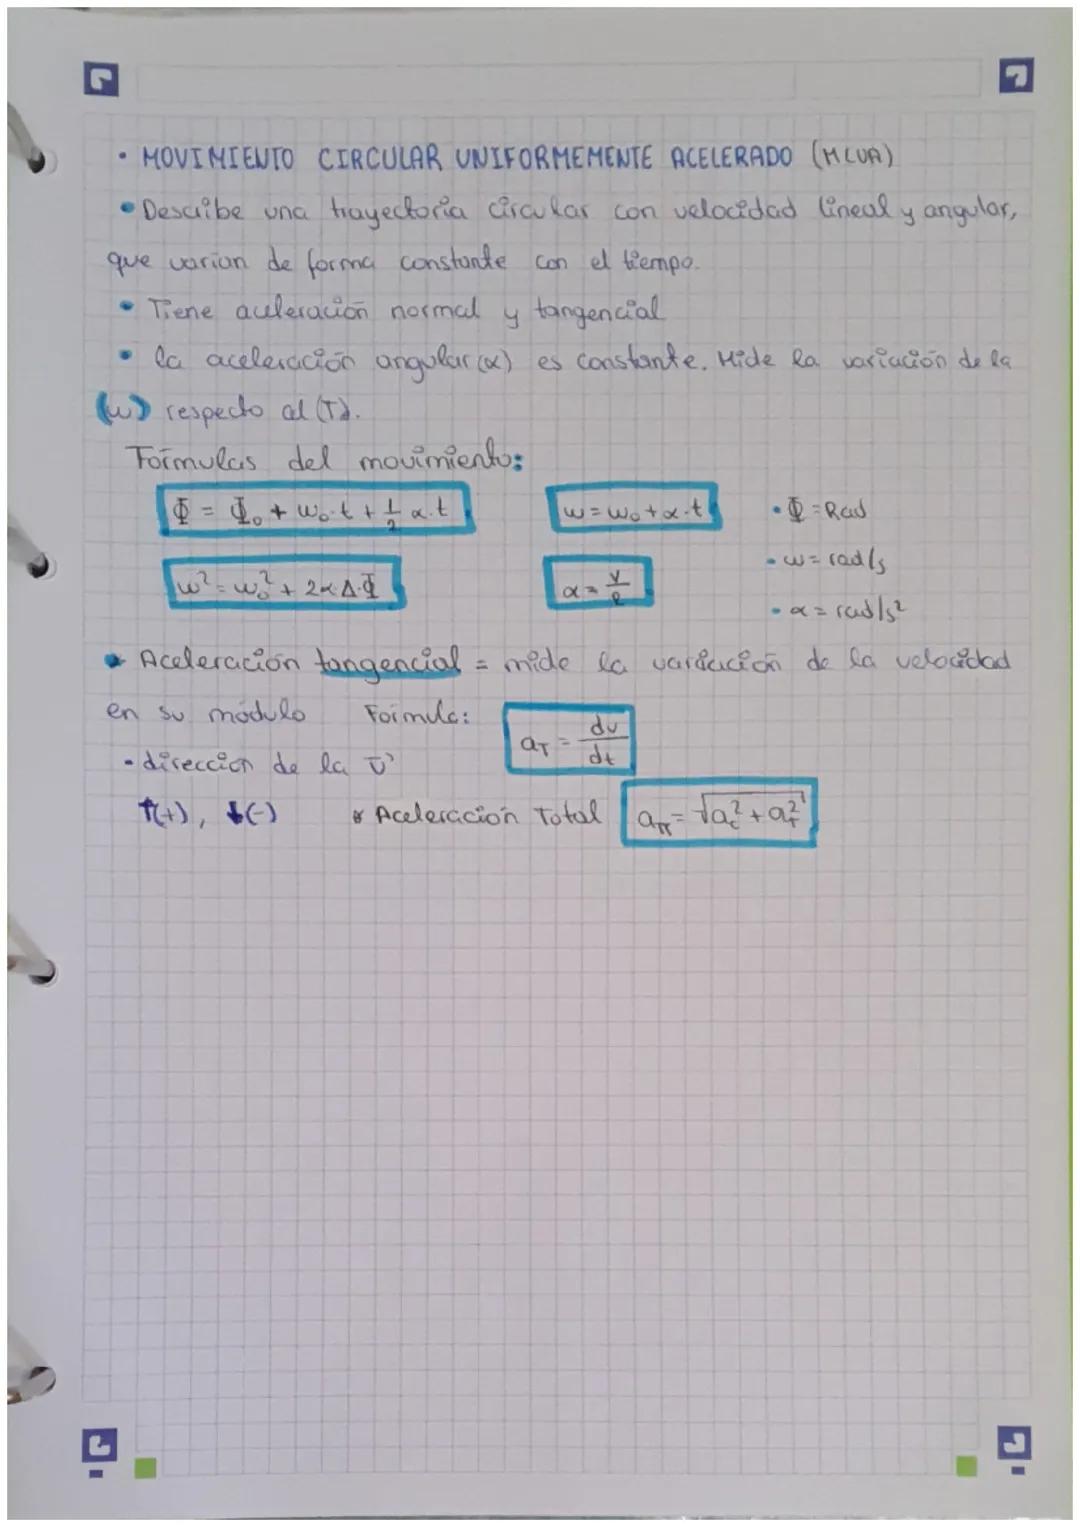 • MOVIMIENTO CIRCULAR UNIFORMEMENTE ACELERADO (MCUA)
• Describe una trayectoria circular con velocidad lineal y angular,
que varian de forma constante con el tiempo.
• Tiene aceleración normal y tangencial
• la aceleración angular (α) es constante. Mide la variación de la
(w) respecto al (T).
Formulas del movimiento:
Φ = Φ₀ + w₀·t + 1/2 α·t
w = w₀ + α·t
• Φ = Rad
w² = w₀² + 2α·Δ·Φ
α = v/R
• w = rad/s
• α = rad/s²
* Aceleración tangencial = mide la variación de la velocidad
en su módulo Formula: a_T = dv/dt
• dirección de la v⃗
↑(+), ↓(-) * Aceleración Total a_TT = √(a_c² + a_T²)